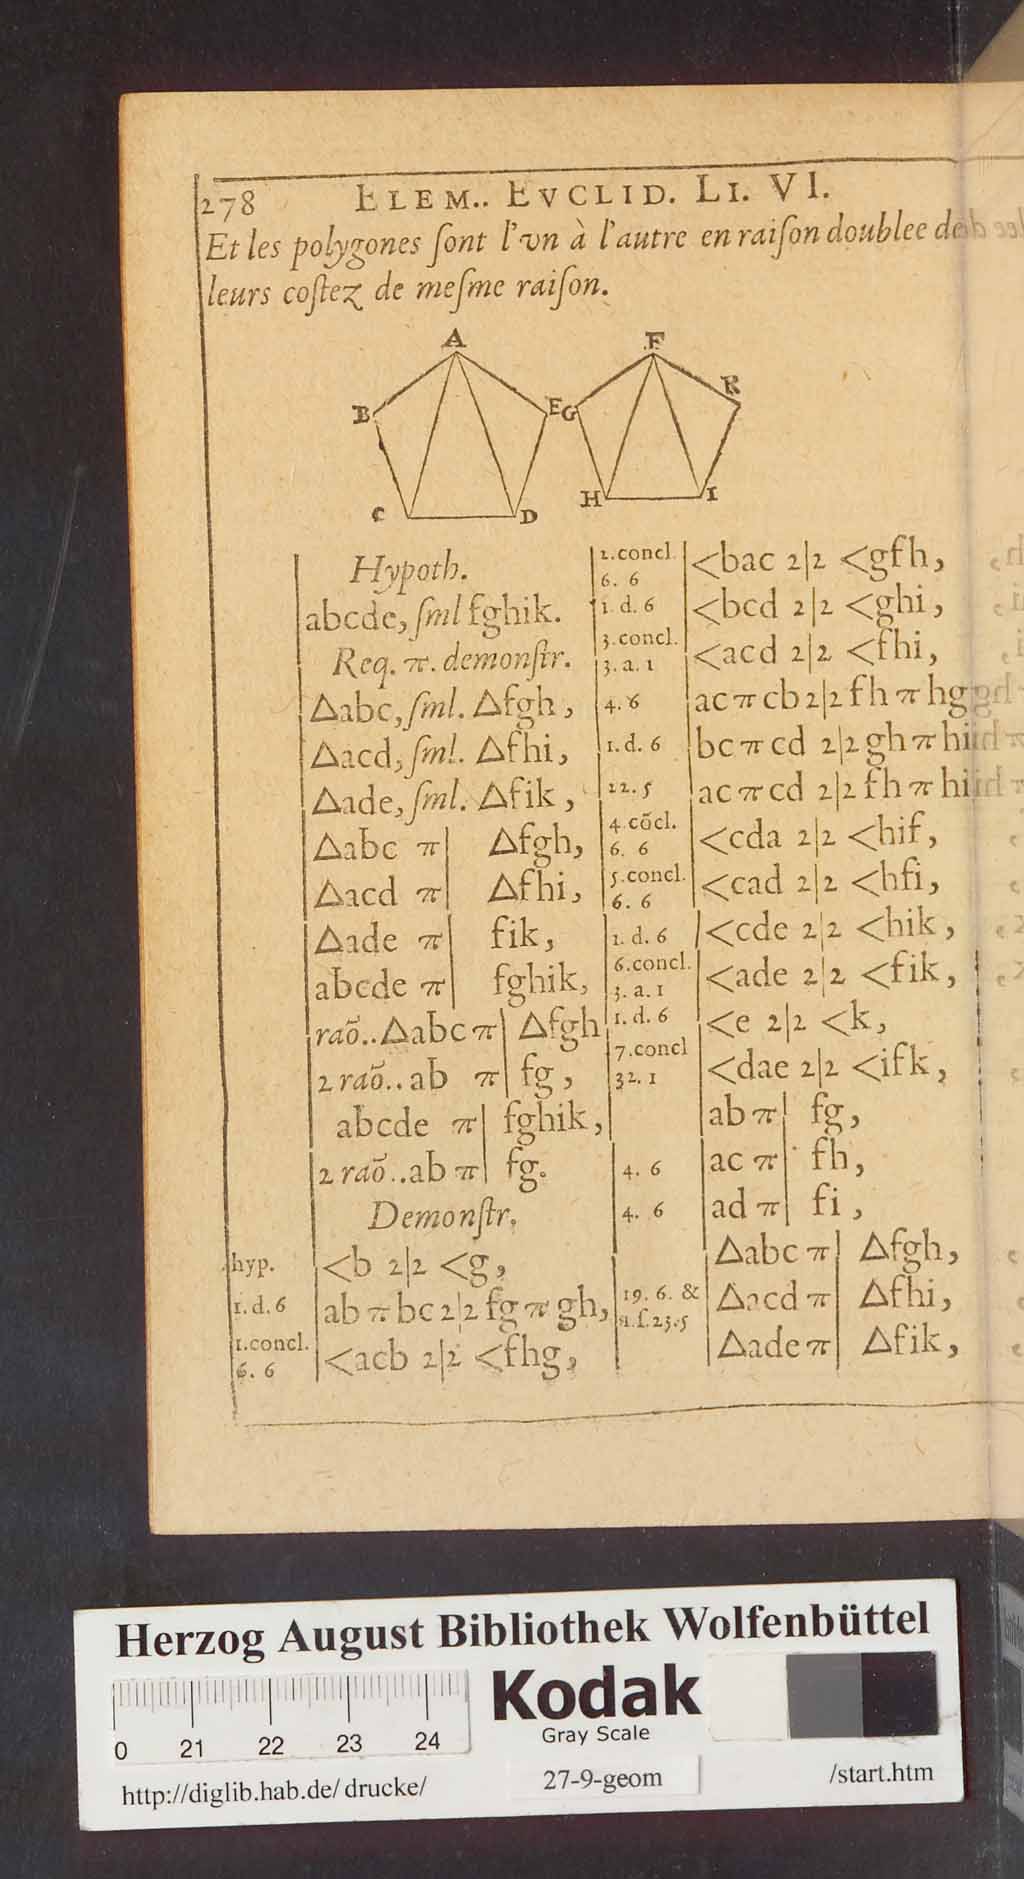 278 ELEM.. EVCLID. LI. VI.
Et les polygones ſont l'vn à l'autre en raiſon doublee de
leurs coſtez de meſme raiſon.
A F
B E G K
C D H I
Hypoth.
abcde, ſml fghik.
Req. π. demonſtr.
Δabc, ſml. Δfgh,
Δacd, ſml. Δfhi,
Δade, ſml. Δfik,
Δabc π| Δfgh,
Δacd π| Δfhi,
Δade π| fik,
abcde π| fghik,
raõ..Δabc π| Δfgh
2 raõ..ab π| fg,
abcde π| fghik,
2 raõ..ab π| fg.
Demonſtr.
hyp. <b 2|2 <g,
1. d. 6 ab π bc 2|2 fg π gh,
1.concl. 6. 6 <acb 2|2 <fhg,
2.concl. 6. 6 <bac 2|2 <gfh,
1. d. 6 <bcd 2|2 <ghi,
3.concl. 3. a. 1 <acd 2|2 <fhi,
4. 6 ac π cb 2|2 fh π hg
1. d. 6 bc π cd 2|2 gh π hi
22. 5 ac π cd 2|2 fh π hi
4.cõcl. 6. 6 <cda 2|2 <hif,
5.concl. 6. 6 <cad 2|2 <hfi,
1. d. 6 <cde 2|2 <hik,
6.concl. 3. a. 1 <ade 2|2 <fik,
1. d. 6 <e 2|2 <k,
7.concl 32. 1 <dae 2|2 <ifk,
ab π| fg,
4. 6 ac π| fh,
4. 6 ad π| fi,
Δabc π| Δfgh,
19. 6. & 1.ſ.23.5 Δacd π| Δfhi,
Δade π| Δfik,
Herzog August Bibliothek Wolfenbüttel
Kodak
Gray Scale
0 21 22 23 24
http://diglib.hab.de/drucke/ 27-9-geom /start.htm